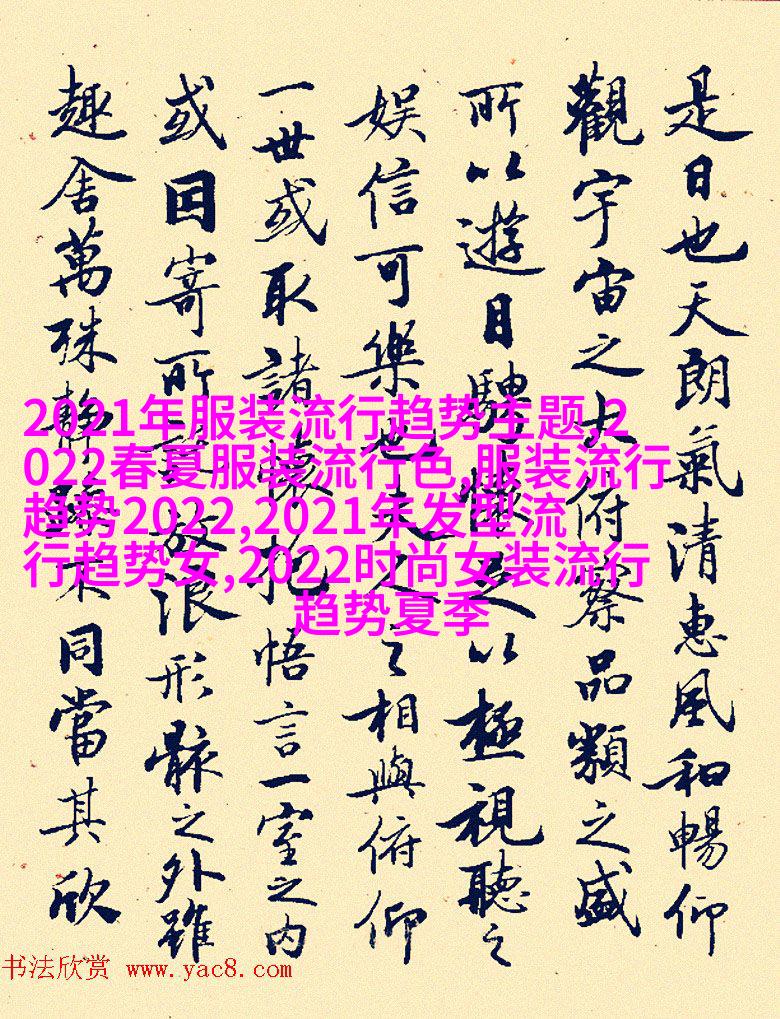 是日也天朗氣清惠風和暢仰
觀宇宙之大俯察品類之盛
所以遊目騁懷足以極視聽之
娱信可樂也夫人之相與俯仰
一世或取諸懷抱悟言一室之内
或因寄所放浪形骸之外雖
趣舍萬殊静不同當其欣
2021年服装流行趋势主题,2
022春夏服装流行色,服装流行
趋势2022,2021年发型流
行趋势女,2022时尚女装流行
趋势夏季
书法欣赏 www.yac8.com